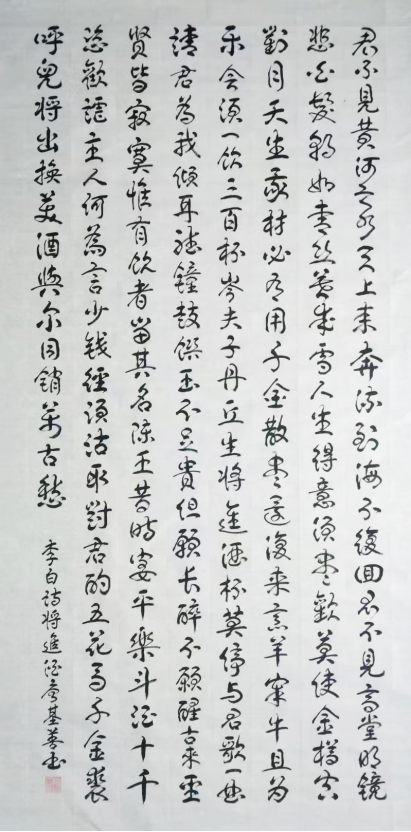 君不見黄河之水天上来奔流到海不復回君不見高堂明鏡
悲白髮朝如青丝暮成雪人生得意须盡歡莫使金樽空
對月天生我材必有用千金散盡還復来烹羊宰牛且为
乐会须一饮三百杯岑夫子丹丘生将進酒杯莫停与君歌一曲
請君為我倾耳聴鐘鼓饌玉不足貴但願长醉不願醒古来聖
贤皆寂寞惟有饮者留其名陈王昔時宴平樂斗酒十千
恣歡謔主人何為言少钱径须沽取對君酌五花马千金裘
呼兒将出换美酒與尔同銷萬古愁
李白詩将進酒基善书